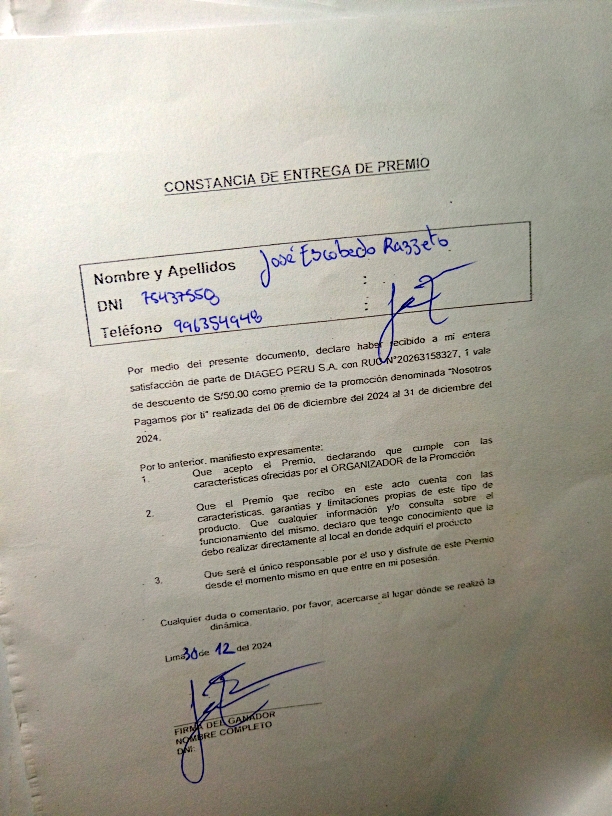 CONSTANCIA DE ENTREGA DE PREMIO
Nombre y Apellidos José Escobedo Razzeto
DNI 75437550 :
Teléfono 996354948 :
Por medio del presente documento, declaro haber recibido a mi entera
satisfacción de parte de DIAGEO PERU S.A. con RUC N°20263158327, 1 vale
de descuento de S/50.00 como premio de la promoción denominada "Nosotros
Pagamos por ti" realizada del 06 de diciembre del 2024 al 31 de diciembre del
2024.
Por lo anterior, manifiesto expresamente:
1. Que acepto el Premio, declarando que cumple con las
características ofrecidas por el ORGANIZADOR de la Promoción
2. Que el Premio que recibo en este acto cuenta con las
características, garantias y limitaciones propias de este tipo de
producto. Que cualquier información y/o consulta sobre el
funcionamiento del mismo, declaro que tengo conocimiento que la
debo realizar directamente al local en donde adquirí el producto
3. Que seré el único responsable por el uso y disfrute de este Premio
desde el momento mismo en que entre en mi posesión.
Cualquier duda o comentario, por favor, acercarse al lugar dónde se realizó la
dinámica.
Lima 30 de 12 del 2024
FIRMA DEL GANADOR
NOMBRE COMPLETO
DNI: